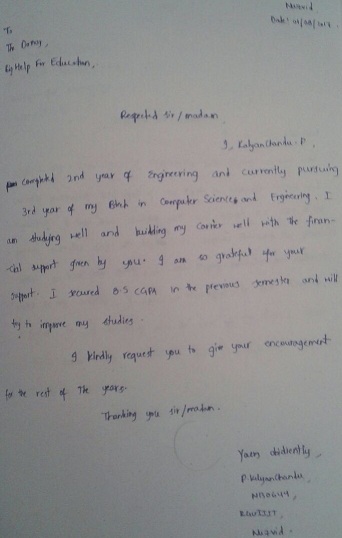 Nuzvid.
To
The Donor,
Help For Education,
Respected Sir/madam
I, KalyanChandu.P.
completed 2nd year of Engineering and currently pursuing
3rd year of my Btech in Computer Science and Engineering. I
am studying well and building my carrier well with the finan-
cial support given by you. I am so grateful for your
support. I secured 8.5 CGPA in the previous semester and will
try to improve my studies.
I kindly request you to give your encouragement
for the rest of The years.
Thanking you sir/madam.
Yours obidiently,
P.KalyanChandu,
Nuzvid.